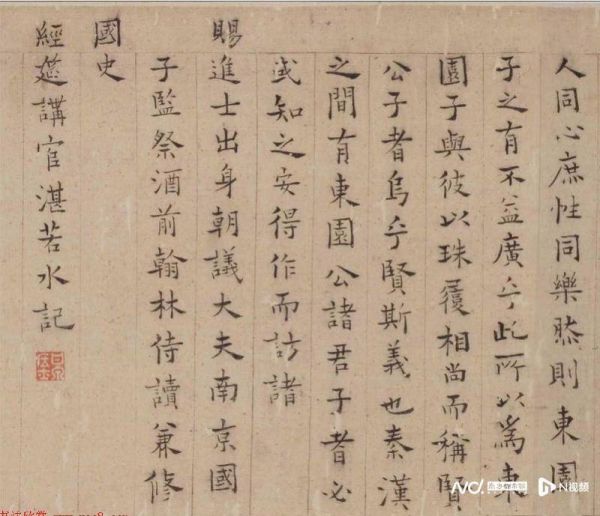 人同心庶性同樂然則東園
子之有不益廣乎此所以為東
園子與彼以珠履相尚而稱賢
公子者烏乎賢斯義也秦漢
之間有東園公諸君子者必
或知之安得作而訪諸
賜進士出身朝議大夫南京國
子監祭酒前翰林侍讀兼修
國史
經筵講官湛若水記
N视频